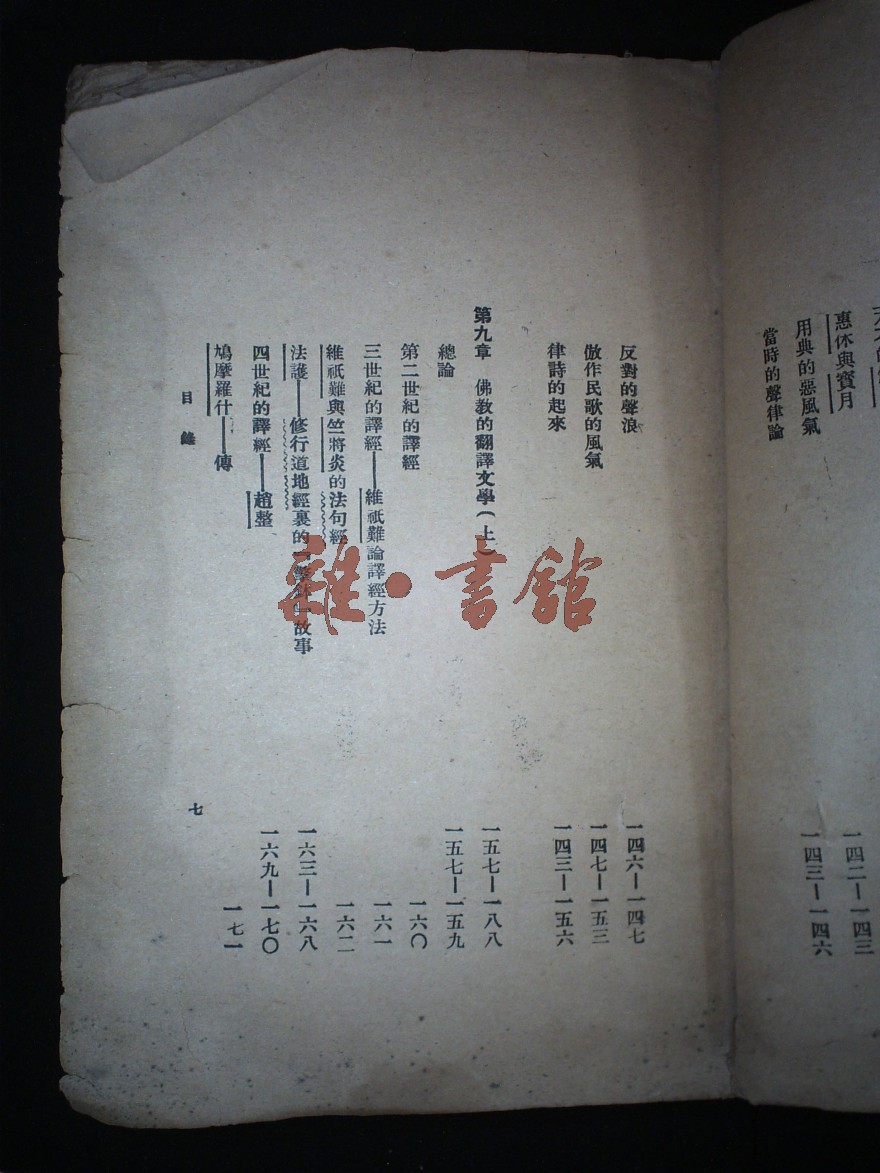 惠休與寶月
用典的惡風氣 一四二—一四三
當時的聲律論 一四三—一四六
反對的聲浪 一四六—一四七
倣作民歌的風氣 一四七—一五三
律詩的起來 一四三—一五六
第九章 佛教的翻譯文學（上） 一五七—一八八
總論 一五七—一五九
第二世紀的譯經 一六〇
三世紀的譯經——維祇難論譯經方法 一六一
維祇難與竺將炎的法句經 一六二
法護——修行道地經裏的「擎鉢」故事 一六三—一六八
四世紀的譯經——趙整 一六九—一七〇
鳩摩羅什——傳 一七一
目錄
七
雜·書館